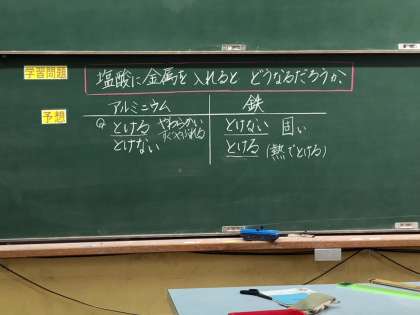 学習問題
塩酸に金属を入れると どうなるだろうか。
予想
アルミニウム 鉄
とける やわらかい
とけない
とけない 固い
とける (熱でとける)